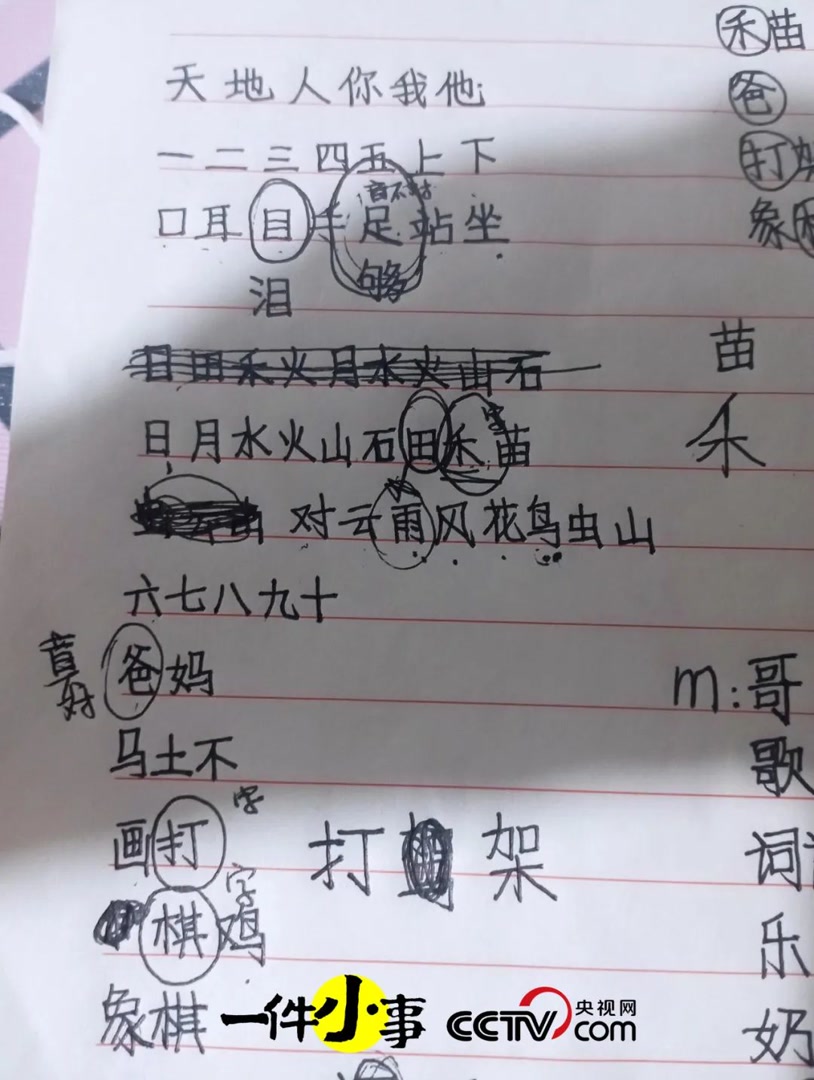 天地人你我他
一二三四五上下
音不
口耳目手足站坐
够
泪
日田禾火月水火山石
日月水火山石田禾苗
字
对云雨风花鸟虫山
六七八九十
音
爸妈
马土不
画打
字
打 架
棋鸡
字
象棋
禾苗
爸
打
象
苗
禾
m:哥
歌
词
乐
奶
一件小事
CCTV.com 央视网